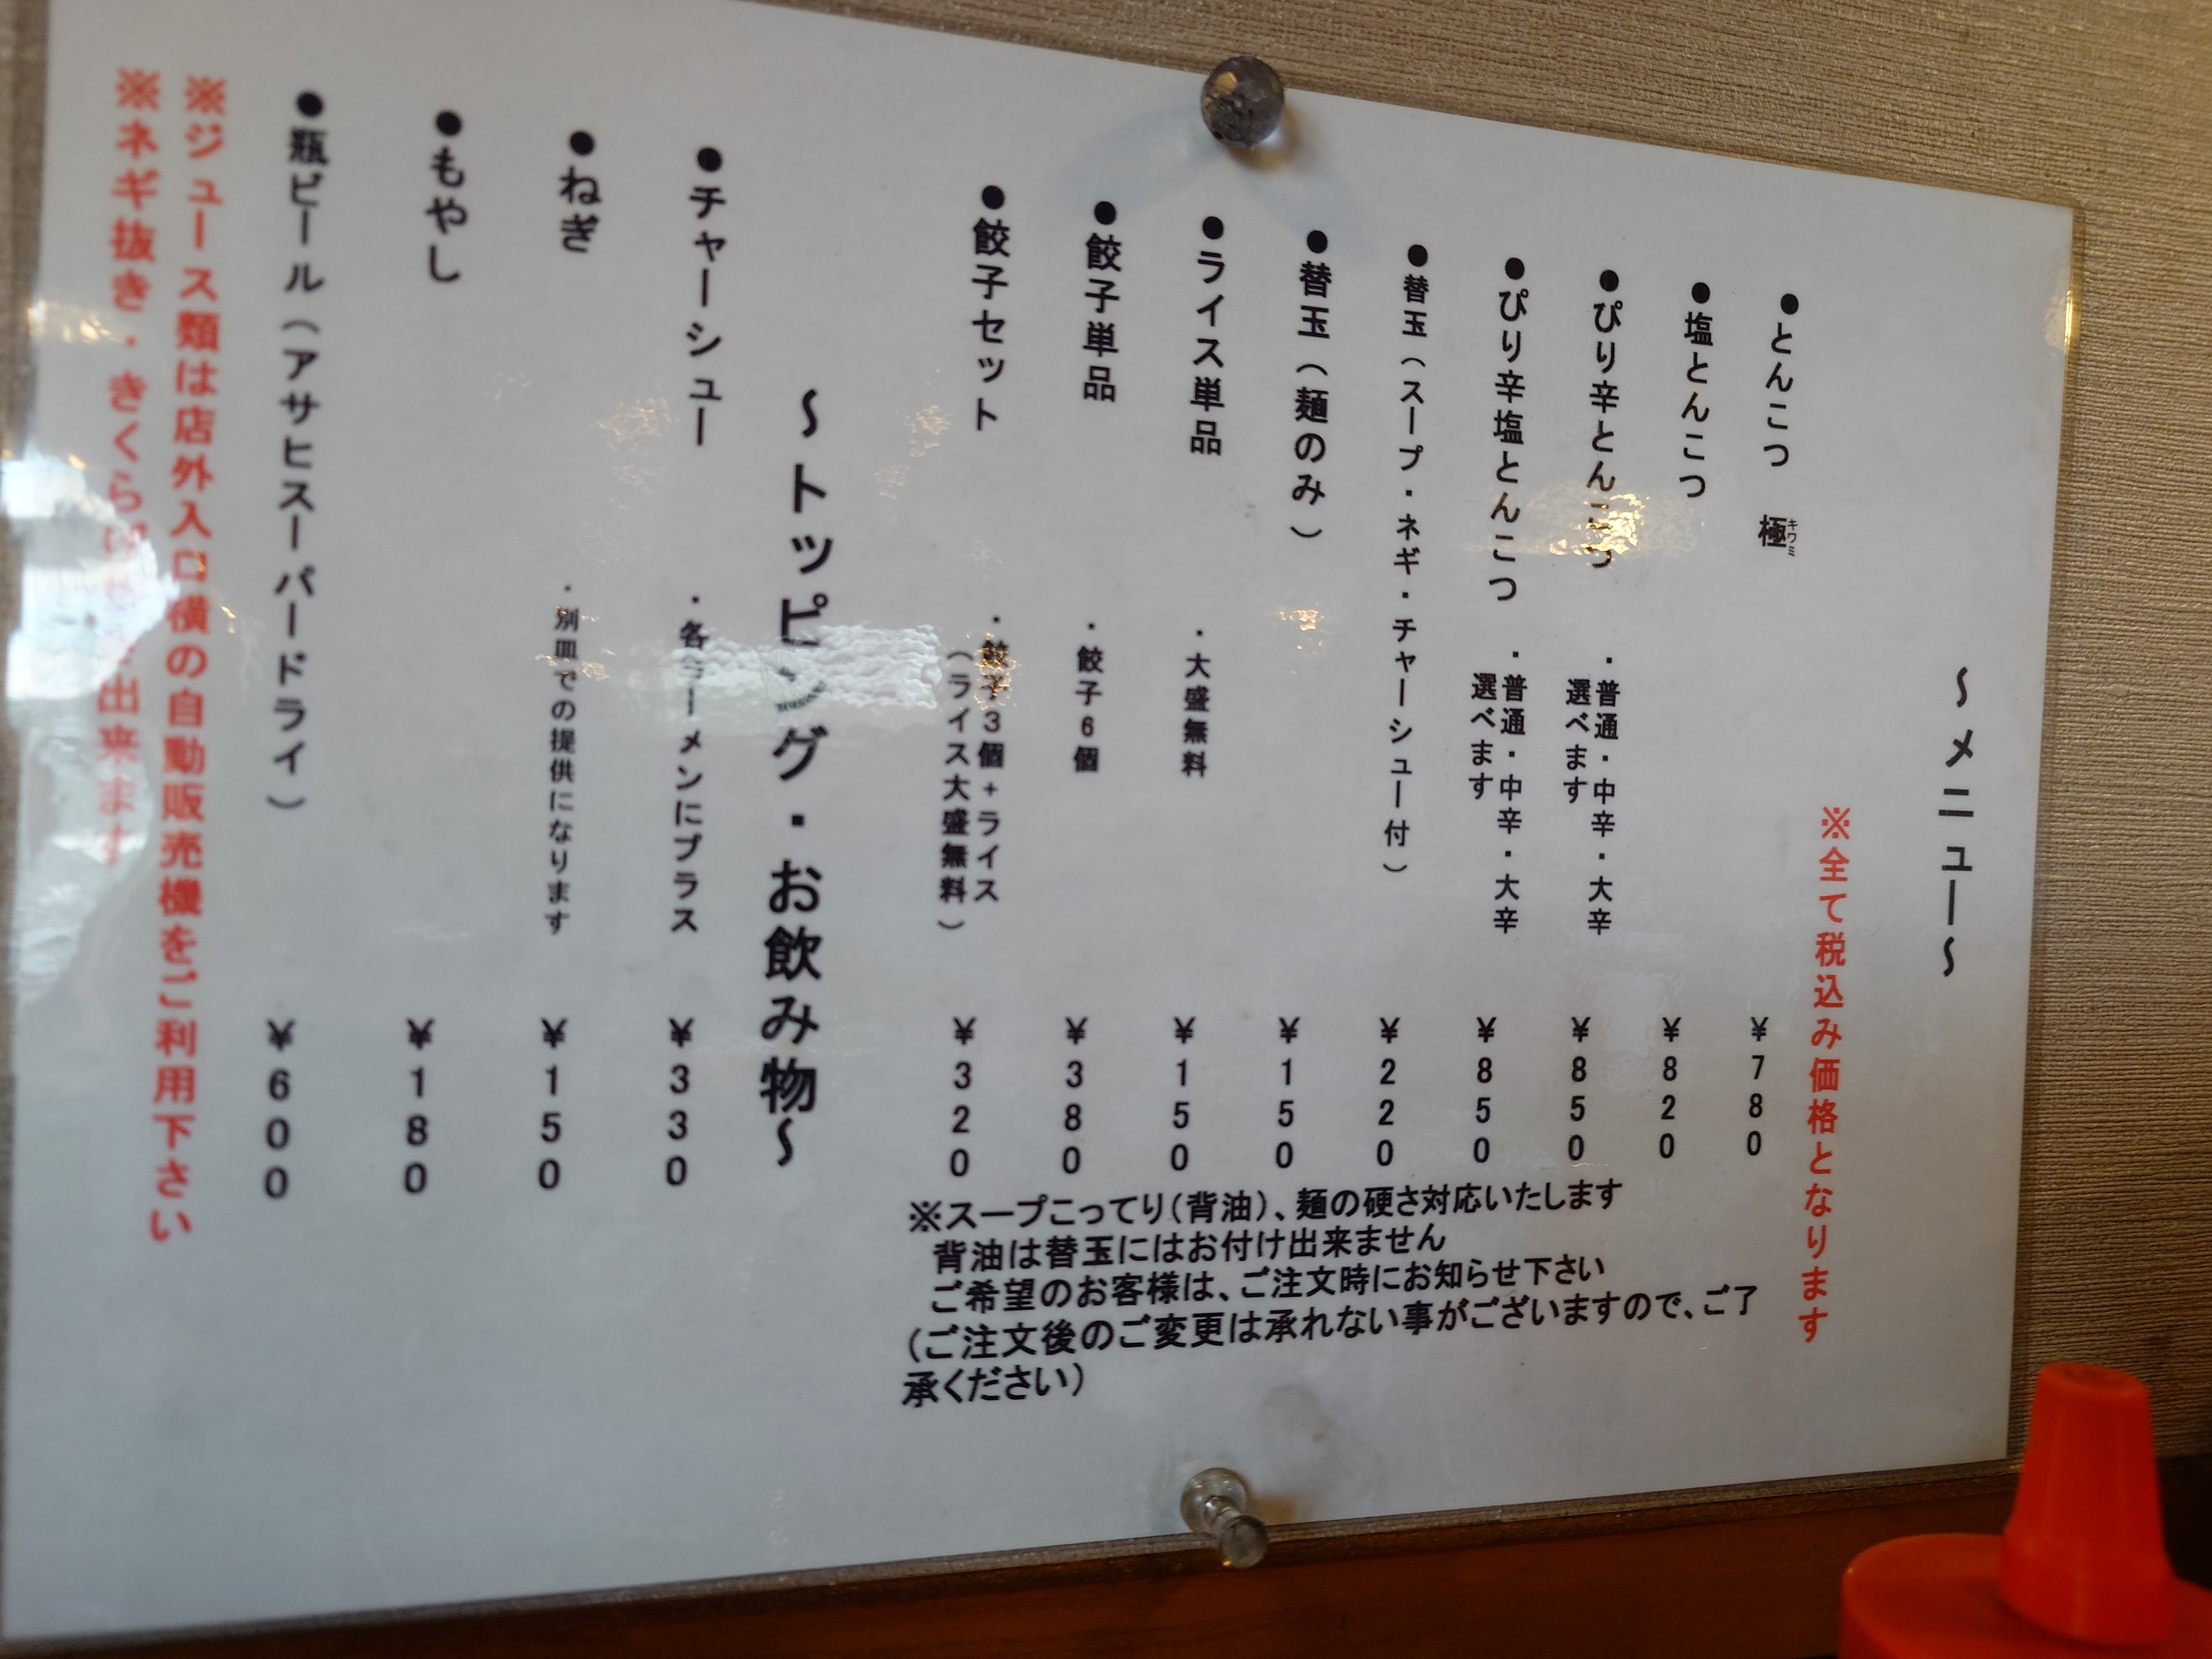 ～メニュー～
※全て税込み価格となります
●とんこつ 極 ¥780
キワミ
●塩とんこつ ¥820
●ぴり辛とんこつ ・普通・中辛・大辛 ¥850
選べます
●ぴり辛塩とんこつ ・普通・中辛・大辛 ¥850
選べます
●替玉(スープ・ネギ・チャーシュー付) ¥220
●替玉(麺のみ) ¥150
●ライス単品 ・大盛無料 ¥150
●餃子単品 ・餃子6個 ¥380
●餃子セット ・餃子3個+ライス ¥320
(ライス大盛無料)
※スープこってり(背油)、麺の硬さ対応いたします
背油は替玉にはお付け出来ません
ご希望のお客様は、ご注文時にお知らせ下さい
(ご注文後のご変更は承れない事がございますので、ご了
承ください)
～トッピング・お飲み物～
●チャーシュー ・各ラーメンにプラス ¥330
●ねぎ ・別皿での提供になります ¥150
●もやし ¥180
●瓶ビール(アサヒスーパードライ) ¥600
※ジュース類は店外入口横の自動販売機をご利用下さい
※ネギ抜き・きくらげ 出来ます